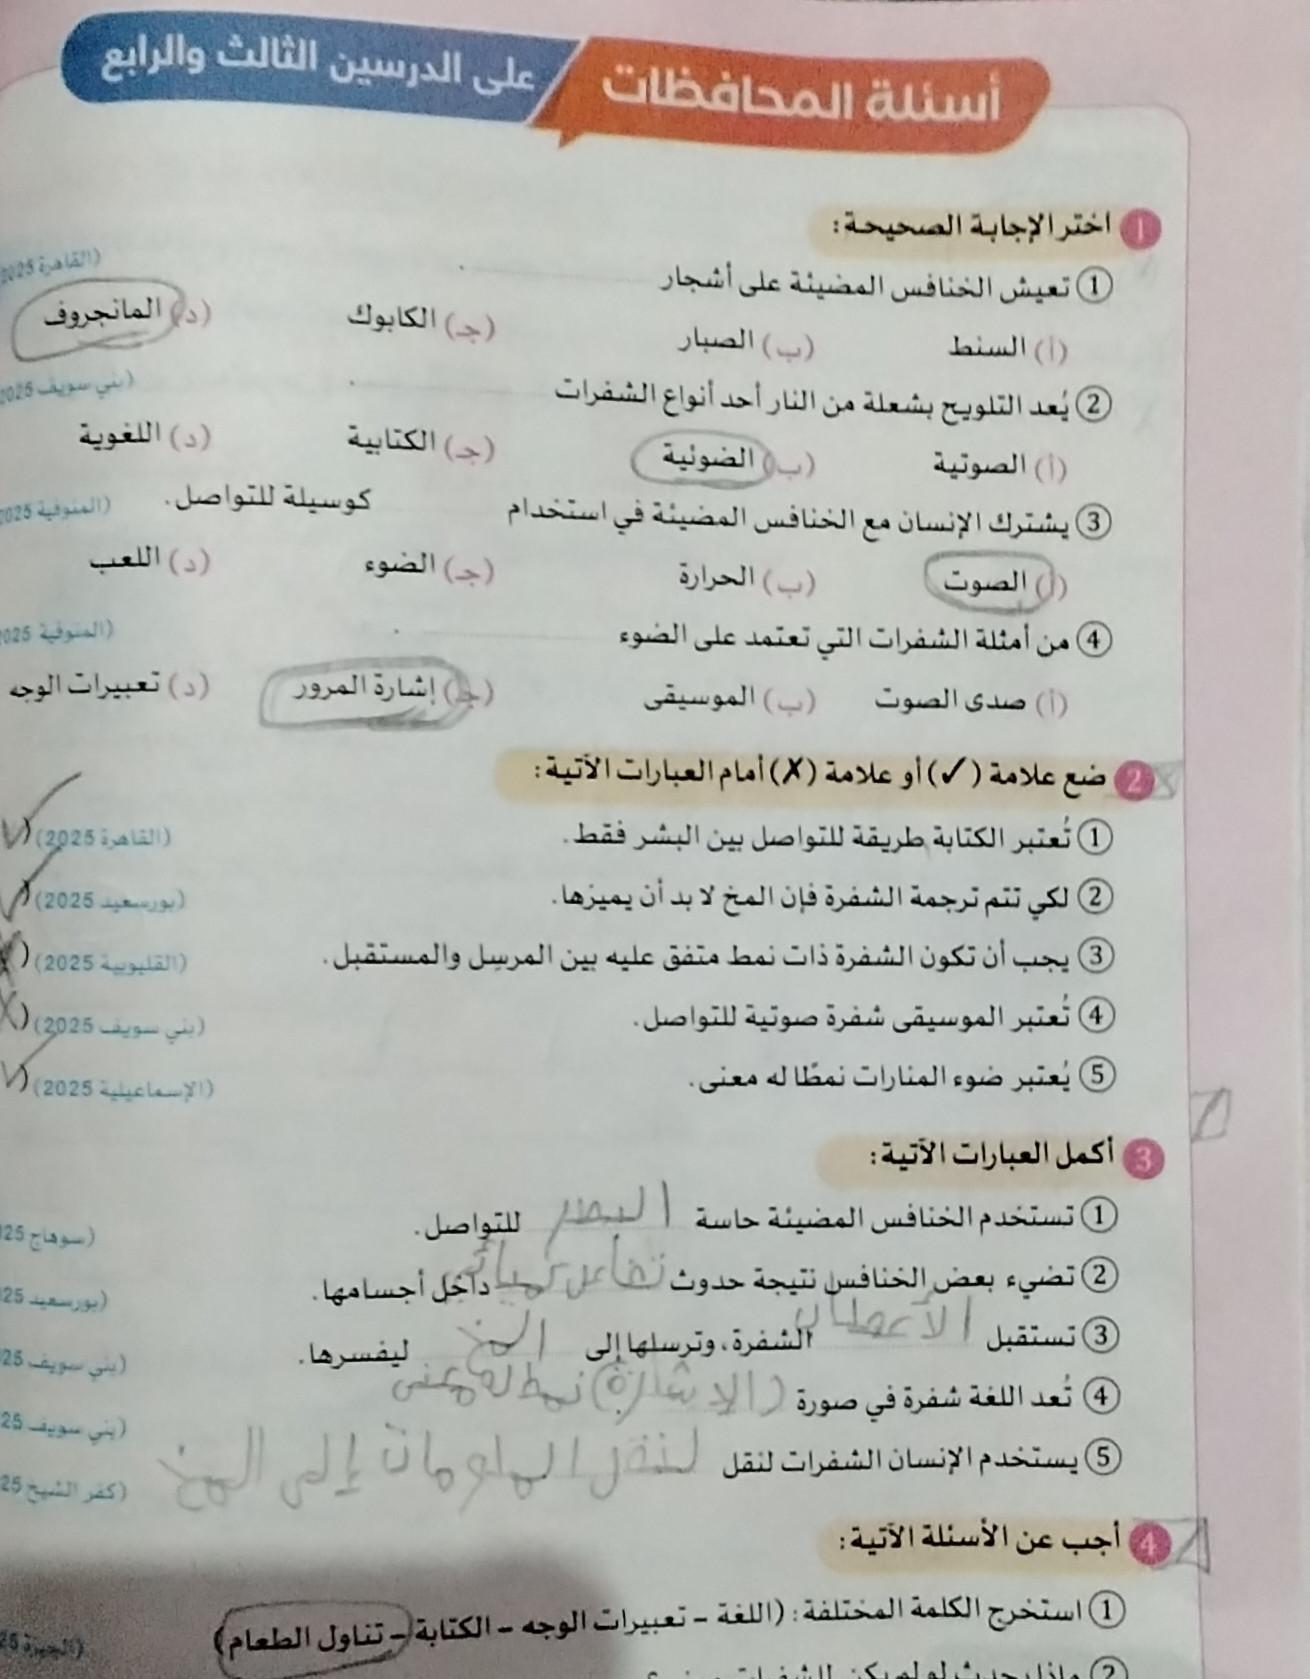 أسئلة المحافظات على الدرسين الثالث والرابع
1 اختر الإجابة الصحيحة:
① تعيش الخنافس المضيئة على أشجار .......... . (القاهرة 2025
(أ) السنط (ب) الصبار (جـ) الكابوك (د) المانجروف
② يُعد التلويح بشعلة من النار أحد أنواع الشفرات .......... . (بني سويف 2025
(أ) الصوتية (ب) الضوئية (جـ) الكتابية (د) اللغوية
③ يشترك الإنسان مع الخنافس المضيئة في استخدام .......... كوسيلة للتواصل. (المنوفية 2025
(أ) الصوت (ب) الحرارة (جـ) الضوء (د) اللعب
④ من أمثلة الشفرات التي تعتمد على الضوء .......... . (المنوفية 2025
(أ) صدى الصوت (ب) الموسيقى (جـ) إشارة المرور (د) تعبيرات الوجه
2 ضع علامة (✓) أو علامة (✗) أمام العبارات الآتية:
① تُعتبر الكتابة طريقة للتواصل بين البشر فقط. (القاهرة 2025) (✓
② لكي تتم ترجمة الشفرة فإن المخ لا بد أن يميزها. (بورسعيد 2025) (✓
③ يجب أن تكون الشفرة ذات نمط متفق عليه بين المرسِل والمستقبل. (القليوبية 2025) (✗
④ تُعتبر الموسيقى شفرة صوتية للتواصل. (بني سويف 2025) (✗
⑤ يُعتبر ضوء المنارات نمطًا له معنى. (الإسماعيلية 2025) (✓
3 أكمل العبارات الآتية:
① تستخدم الخنافس المضيئة حاسة البصر للتواصل. (سوهاج 25
② تضيء بعض الخنافس نتيجة حدوث تفاعل كميائي داخل أجسامها. (بورسعيد 25
③ تستقبل الأعطاب الشفرة، وترسلها إلى المخ ليفسرها. (بني سويف 25
④ تُعد اللغة شفرة في صورة (الإشارة) نمط له معنى (بني سويف 25
⑤ يستخدم الإنسان الشفرات لنقل لنقل المعلومات إلى المخ (كفر الشيخ 25
4 أجب عن الأسئلة الآتية:
① استخرج الكلمة المختلفة: (اللغة - تعبيرات الوجه - الكتابة - تناول الطعام) (الجيزة 25